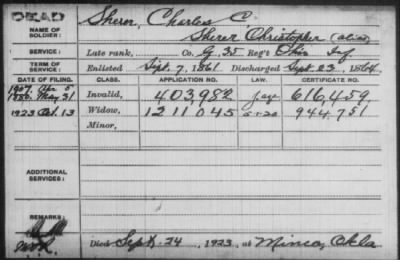 DEAD
NAME OF SOLDIER: Sheror, Charles C.
Sheror Christopher (alias)
SERVICE: Late rank, Co. G, 35 Reg't Ohio Inf
TERM OF SERVICE: Enlisted Sept. 7, 1861 Discharged Sept. 23, 1864
DATE OF FILING. CLASS. APPLICATION NO. LAW. CERTIFICATE NO.
1907. Apr 5
1880. May 31 Invalid, 403,982 J. age 616,459
1923 Oct. 13 Widow, 1211045 5-1-20 944,751
Minor,
ADDITIONAL SERVICES:
REMARKS:
Died Sept. 24, 1923, at Minco, Okla